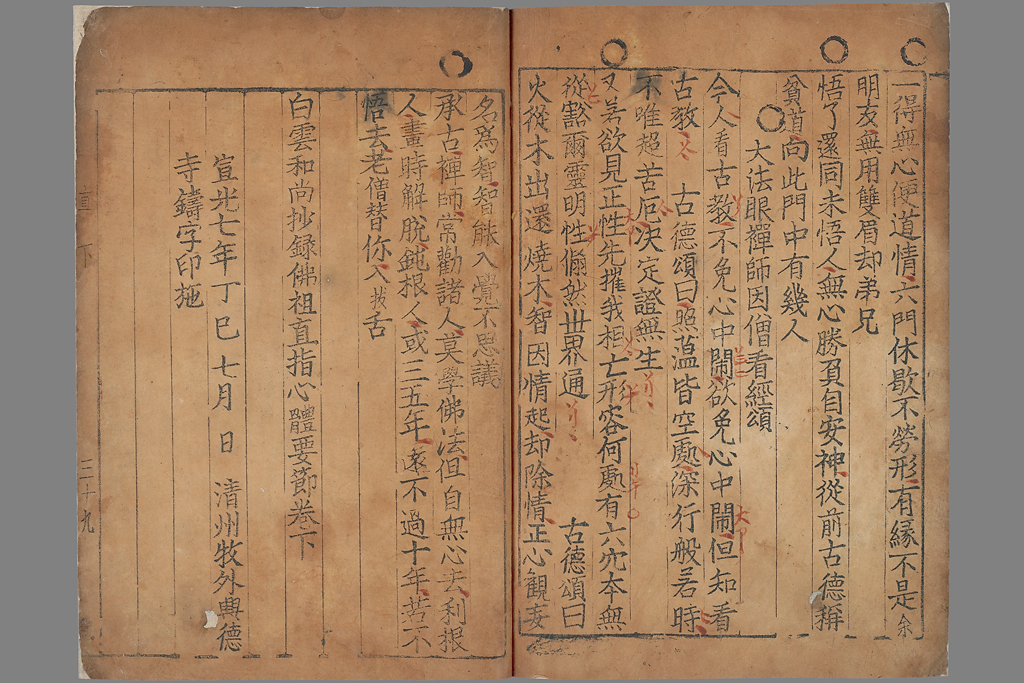 一得無心便道情六門休歇不勞形有緣不是余
朋友無用雙眉却弟兄
悟了還同未悟人無心勝負自安神從前古德稱
貧道向此門中有幾人
〇大法眼禪師因僧看經頌
今人看古教不免心中鬧欲免心中鬧但知看
古教 古德頌曰照薀皆空處深行般若時
不唯超苦厄決定證無生
又若欲見正性先摧我相亡形容何處有六穴本無
從豁爾靈明性翛然世界通 古德頌曰
火從木出還燒木智因情起却除情正心觀妄
名爲智智能入覺不思議
承古禪師常勸諸人莫學佛法但自無心去利根
人畫時解脫鈍根人或三五年遠不過十年若不
悟去老僧替你入拔舌
白雲和尚抄錄佛祖直指心體要節卷下
宣光七年丁巳七月 日 清州牧外興德
寺鑄字印施
直 下
三十九